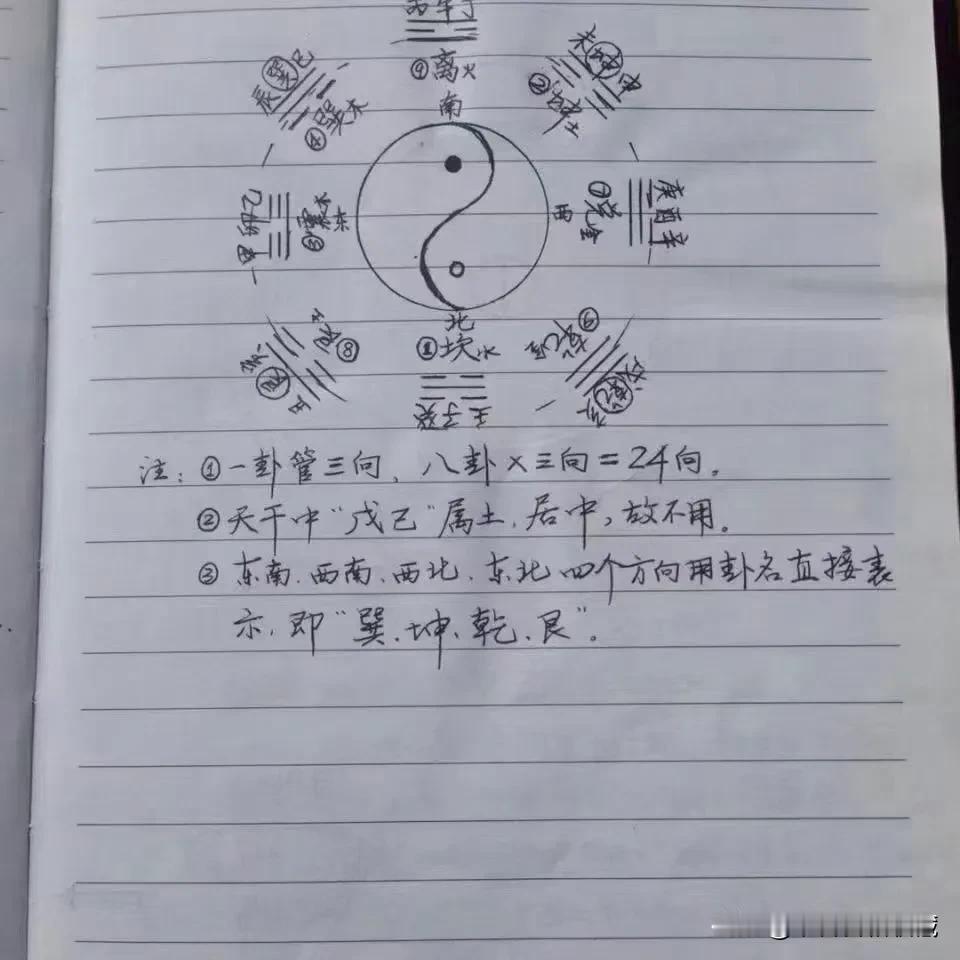 丙午丁
⑨离火
南
未坤申
②坤土
辰巽巳
④巽木
甲卯乙
东
西
庚酉辛
北
①坎水
壬子癸
⑧
⑥
注：①一卦管三向，八卦×三向=24向。
②天干中“戊己”属土，居中，故不用。
③东南、西南、西北、东北四个方向用卦名直接表
示，即“巽、坤、乾、艮”。